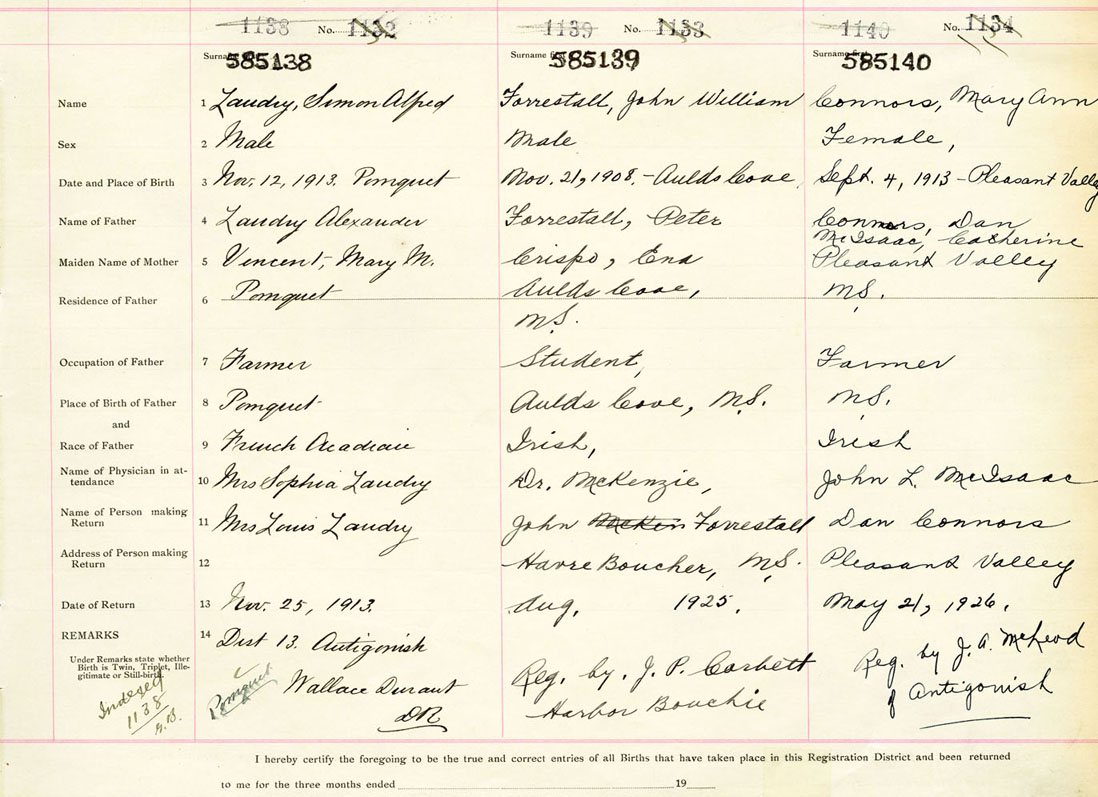 1138 No. 1132 1139 No. 1133 1140 No. 1134
Surname first Surname first
585138 585139 585140
Name 1 Landry, Simon Alfred Forrestall, John William Connors, Mary Ann
Sex 2 Male Male Female,
Date and Place of Birth 3 Nov. 12, 1913. Pomquet Nov. 21, 1908. - Aulds Cove. Sept. 4, 1913 - Pleasant Valley
Name of Father 4 Landry Alexander Forrestall, Peter Connors, Dan
McIsaac, Catherine
Maiden Name of Mother 5 Vincent, Mary M. Crispo, Ena Pleasant Valley
Residence of Father 6 Pomquet Aulds Cove, N.S.
N.S.
Occupation of Father 7 Farmer Student, Farmer
Place of Birth of Father 8 Pomquet Aulds Cove, N.S. N.S.
and
Race of Father 9 French Acadian Irish, Irish
Name of Physician in at-
tendance 10 Mrs Sophia Landry Dr. McKenzie, John L. McIsaac
Name of Person making
Return 11 Mrs Louis Landry John Forrestall Dan Connors
Address of Person making
Return 12 Havre Boucher, N.S. Pleasant Valley
Date of Return 13 Nov. 25, 1913. Aug, 1925. May 21, 1926.
REMARKS 14 Dist 13. Antigonish
Under Remarks state whether
Birth is Twin, Triplet, Ille-
gitimate or Still-birth.
Indexed
1138
Pomquet
Wallace Durant
DR
Reg. by. J. P. Corbett
Harbor Bouchie
Reg. by J. A. McLeod
of Antigonish
I hereby certify the foregoing to be the true and correct entries of all Births that have taken place in this Registration District and been returned
to me for the three months ended 19